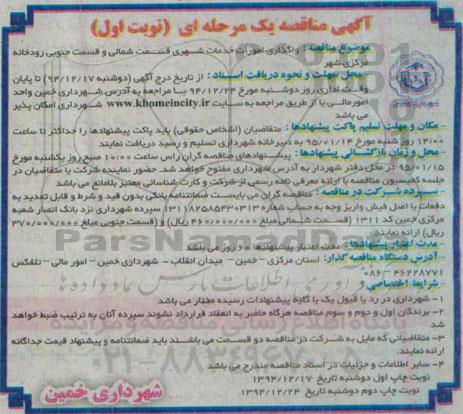 آگهی مناقصه یک مرحله ای (نوبت اول)
موضوع مناقصه : واگذاری امورات خدمات شهری قسمت شمالی و قسمت جنوبی رودخانه
مرکزی شهر
محل مهلت و نحوه دریافت اسناد : از تاریخ درج آگهی (دوشنبه ۹۴/۱۲/۱۷) تا پایان
وقت اداری روز دوشنبه مورخ ۹۴/۱۲/۲۴ با مراجعه به آدرس شهرداری خمین واحد
امورمالی یا از طریق مراجعه به سایت www.khomeincity.ir شهرداری امکان پذیر
می باشد
مکان و مهلت تسلیم پاکت پیشنهادها : متقاضیان (اشخاص حقوقی) باید پاکت پیشنهادها را حداکثر تا ساعت
۱۴:۰۰ روز شنبه مورخ ۹۵/۰۱/۱۴ به دبیرخانه شهرداری تسلیم و رسید دریافت نمایند
محل و زمان بازگشائی پیشنهادها : پیشنهادهای مناقصه گران راس ساعت ۱۰:۰۰ صبح روز یکشنبه مورخ
۹۵/۰۱/۱۵ در محل دفتر شهردار به آدرس شهرداری مفتوح خواهد شد. حضور نماینده شرکت یا متقاضیان در
جلسه کمیسیون مناقصه با ارائه معرفی نامه رسمی از شرکت و کارت شناسائی معتبر بلامانع می باشد
سپرده شرکت در مناقصه : مناقصه گران می بایست ضمانتنامه بانکی بدون قید و شرط و قابل تمدید به
دفعات یا اصل فیش واریز وجه به حساب شماره سپرده شهرداری نزد بانک انصار شعبه
مرکزی خمین کد ۱۳۱۱ (قسمت شمالی مبلغ ۴۶۰/۰۰۰/۰۰۰ ریال) و (قسمت جنوبی مبلغ ۳۷۰/۰۰۰/۰۰۰
ریال) ارائه نمایند.
مدت اعتبار پیشنهادها : مدت اعتبار پیشنهادها ۶۰ روز می باشد
آدرس دستگاه مناقصه گذار: استان مرکزی - خمین - میدان انقلاب - شهرداری خمین - امور مالی - تلفکس
۰۸۶-۴۶۲۲۸۷۷۱
شرایط اختصاصی:
۱- شهرداری در رد یا قبول یک یا کلیه پیشنهادات رسیده مختار می باشد
۲- برندگان اول و دوم و سوم مناقصه هرگاه حاضر به انعقاد قرارداد نشوند سپرده آنان به ترتیب ضبط خواهد
شد
۳- متقاضیانی که مایل به شرکت در مناقصه دو قسمت می باشند باید ضمانتنامه و پیشنهاد قیمت جداگانه
ارائه نمایند.
۴- سایر اطلاعات و جزئیات در اسناد مناقصه مندرج می باشد
نوبت چاپ اول دوشنبه تاریخ ۱۳۹۴/۱۲/۱۷
نوبت چاپ دوم دوشنبه تاریخ ۱۳۹۴/۱۲/۲۴
شهرداری خمین
ParsNamadData
۰۲۱-۸۸۳۴۹۶۷۰